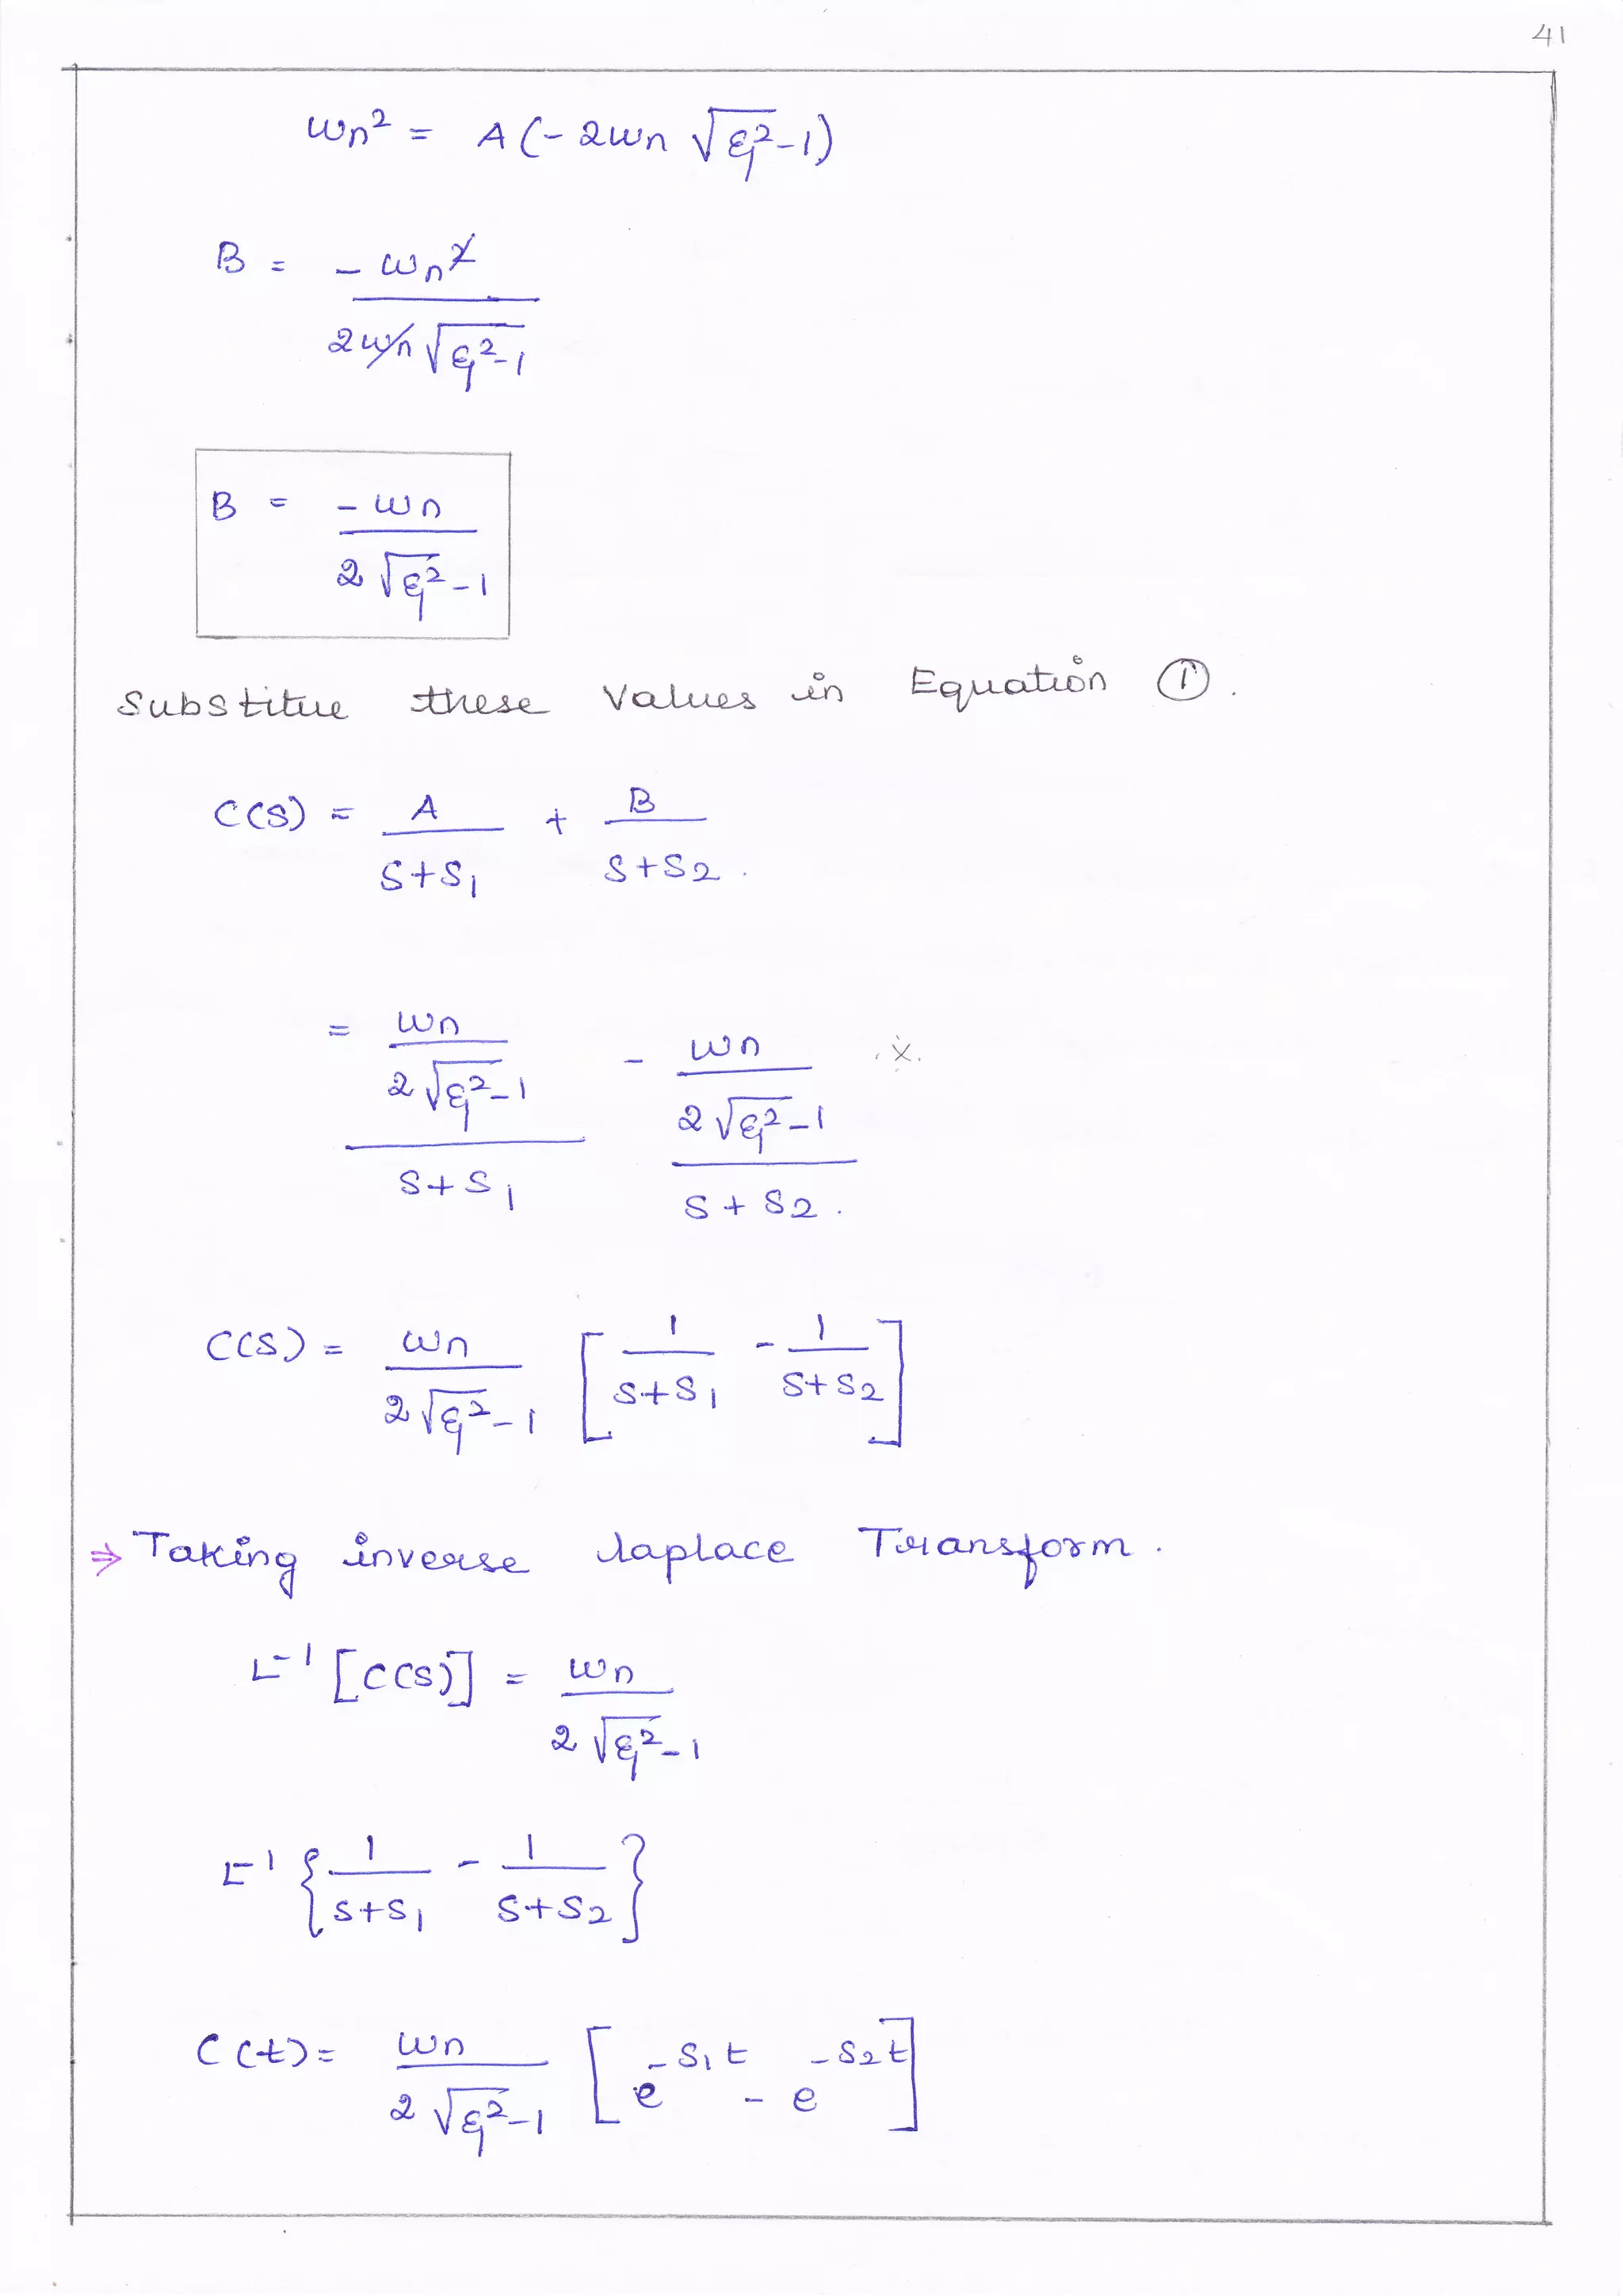 41
ωn² = A(-2ωn √ξ²-1)
B = -ωn²
2ωn √ξ²-1
B = -ωn
2 √ξ²-1
Substitue these Values in Equation ①.
C(S) = A + B
S+S₁ S+S₂.
= ωn - ωn .x.
2√ξ²-1 2√ξ²-1
S+S₁ S+S₂.
C(S) = ωn [ 1 - 1 ]
2√ξ²-1 S+S₁ S+S₂
⇒ Taking inverse laplace Transform.
L⁻¹ [C(S)] = ωn
2 √ξ²-1
L⁻¹ { 1 - 1 }
S+S₁ S+S₂
C(t) = ωn [ e^-S₁t - e^-S₂t ]
2 √ξ²-1